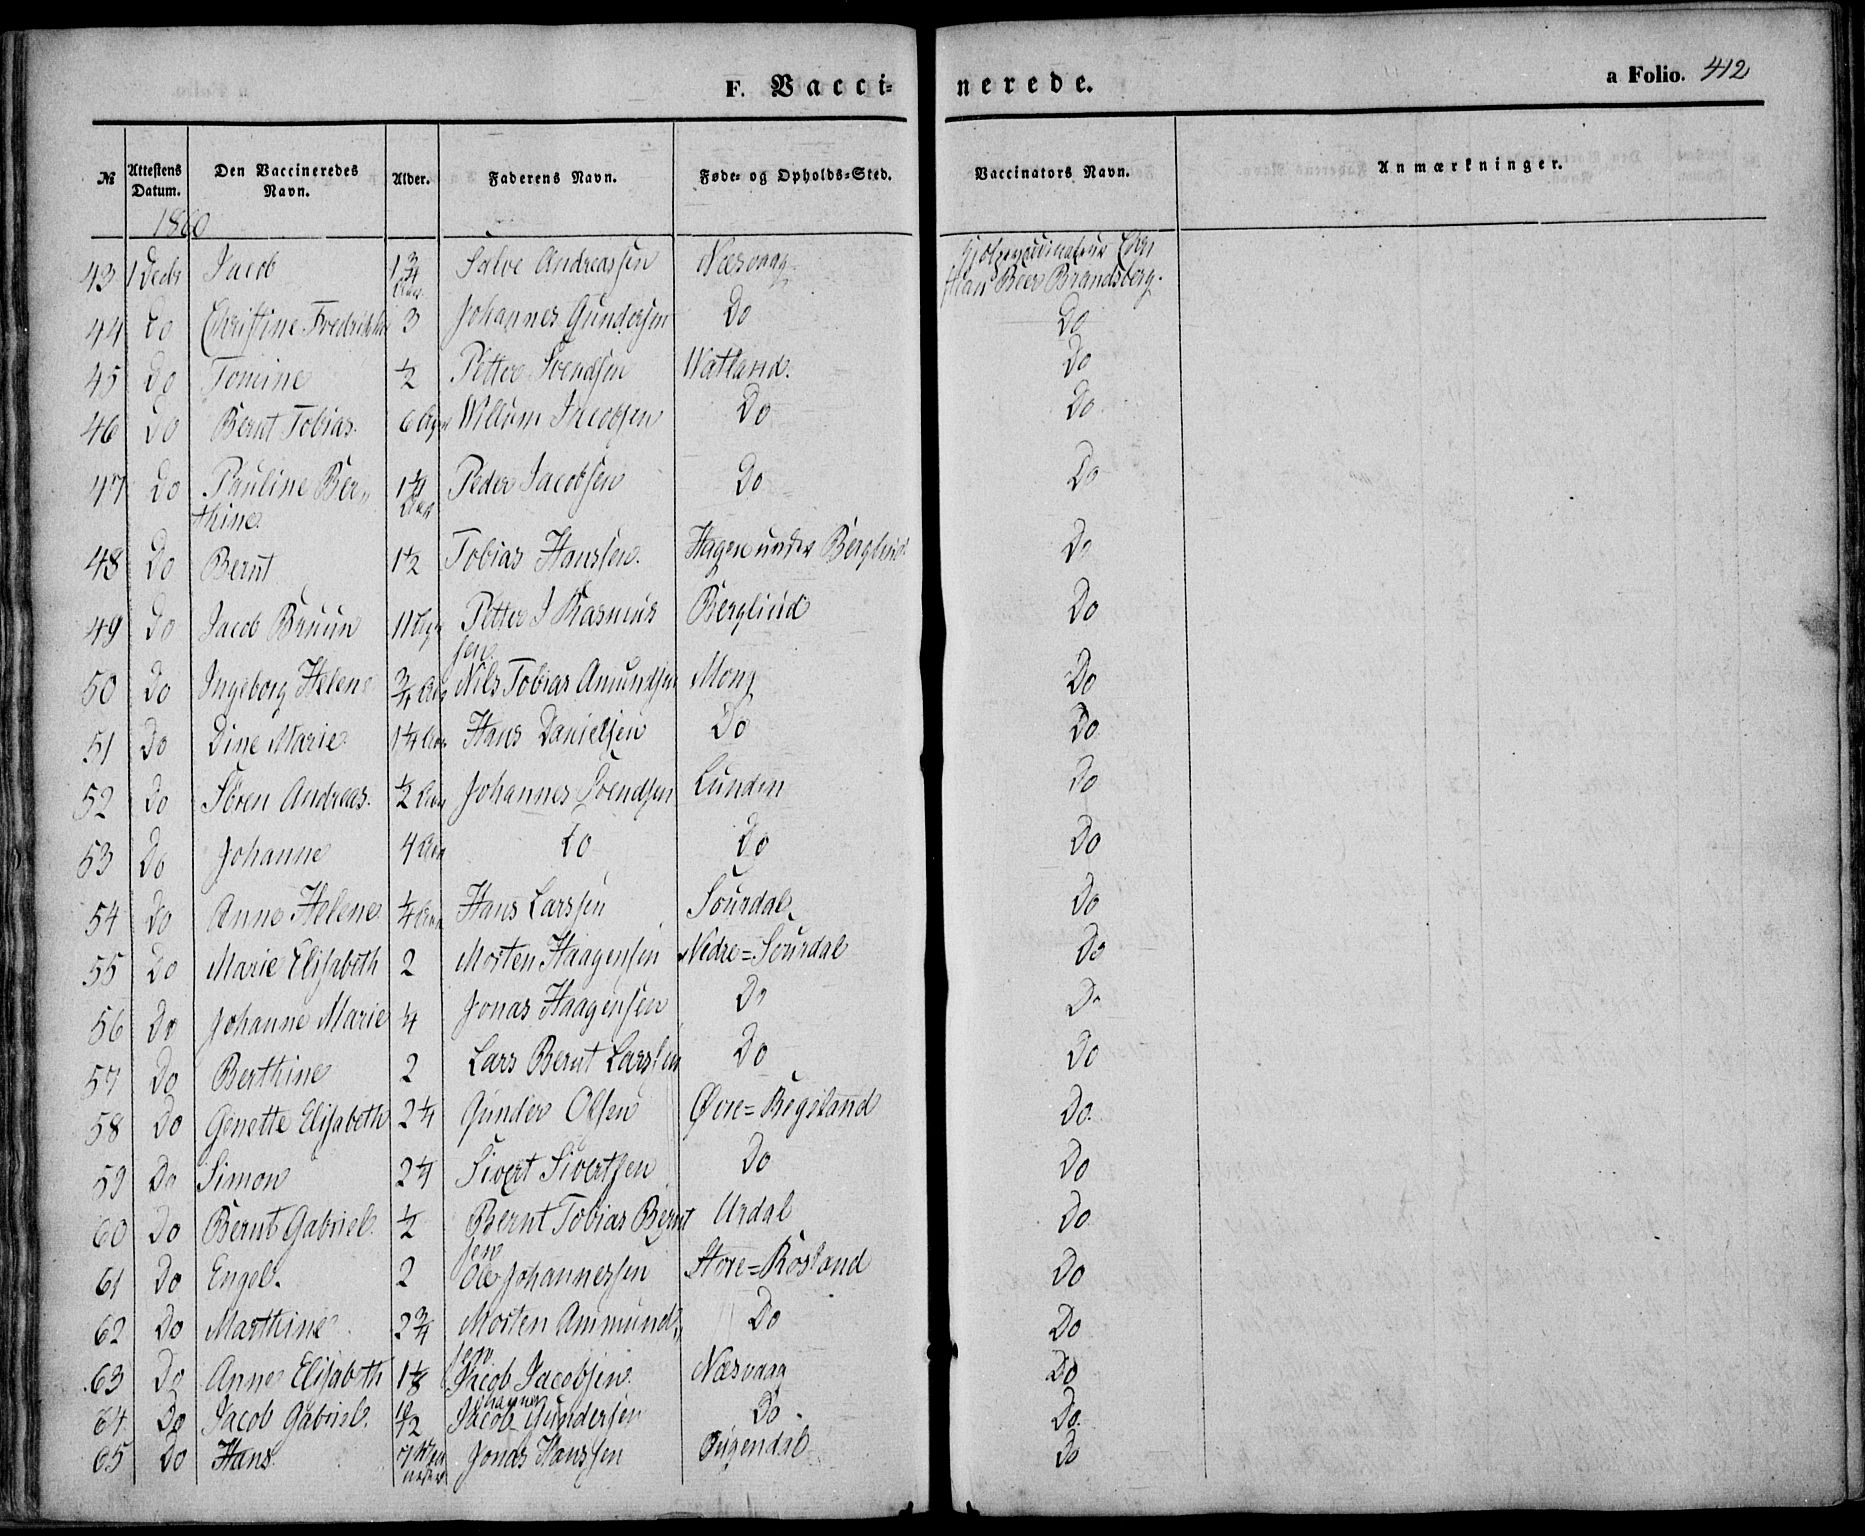 F. Vacci- nerede. a Folio. 412
№ Attestens Datum. Den Vaccineredes Navn. Alder. Faderens Navn. Føde- og Opholds-Sted. Vaccinators Navn. Anmærkninger.
1860
43 1 Decbr Jacob 1 3/4 Aar Salve Andreassen Næsvaag Hjelpevaccinateur Chr
Han Beer Brandsberg.
44 Do Christine Fredrikke 3 Johannes Gundersen Do Do
45 Do Tomine 1/2 Petter Svendsen Watland. Do
46 Do Bernt Tobias. 6 Willum Jacobsen Do Do
47 Do Pauline Ber„ 1 1/4 Aar Peder Jacobsen Do Do
thine.
48 Do Bernt 1 1/2 Tobias Hanssen. Hagen under Berglind Do
49 Do Jacob Bruun 11 Petter J Rasmus Berglind Do
sen.
50 Do Ingeborg Helene 3/4 Aar Nils Tobias Amundsen Mong Do
51 Do Dine Marie 1 1/4 Aar Hans Danielsen Do Do
52 Do Sören Andreas. 1/2 Aar Johannes Svendsen Lunden Do
53 Do Johanne 4 Aar Do Do Do
54 Do Anne Helene 1/4 Aar Hans Larssen Sourdal. Do
55 Do Marie Elisabeth 2 Morten Haagensen Nedre=Sourdal Do
56 Do Johanne Marie 1/4 Jonas Haagensen Do Do
57 Do Berthine 2 Lars Bernt Larssen Do Do
58 Do Genette Elisabeth 2 1/4 Gunder Olsen Øvre=Regeland Do.
59 Do Simon 2 1/4 Sivert Sivertsen Do Do
60 Do Bernt Gabriel. 1/2 Bernt Tobias Bernt Urdal Do
sen
61 Do Engel. 2 Ole Johannessen Store=Rosland Do
62 Do Marthine 2 3/4 Morten Ammund„ Do Do
sen
63 Do Anne Elisabeth 1 1/8 Jacob Jacobsen. Næsvaag Do
64 Do Jacob Gabriel. 1/2 Jacob Gundersen Do. Do.
65 Do Hans 7 Jonas Hanssen Øigendal Do